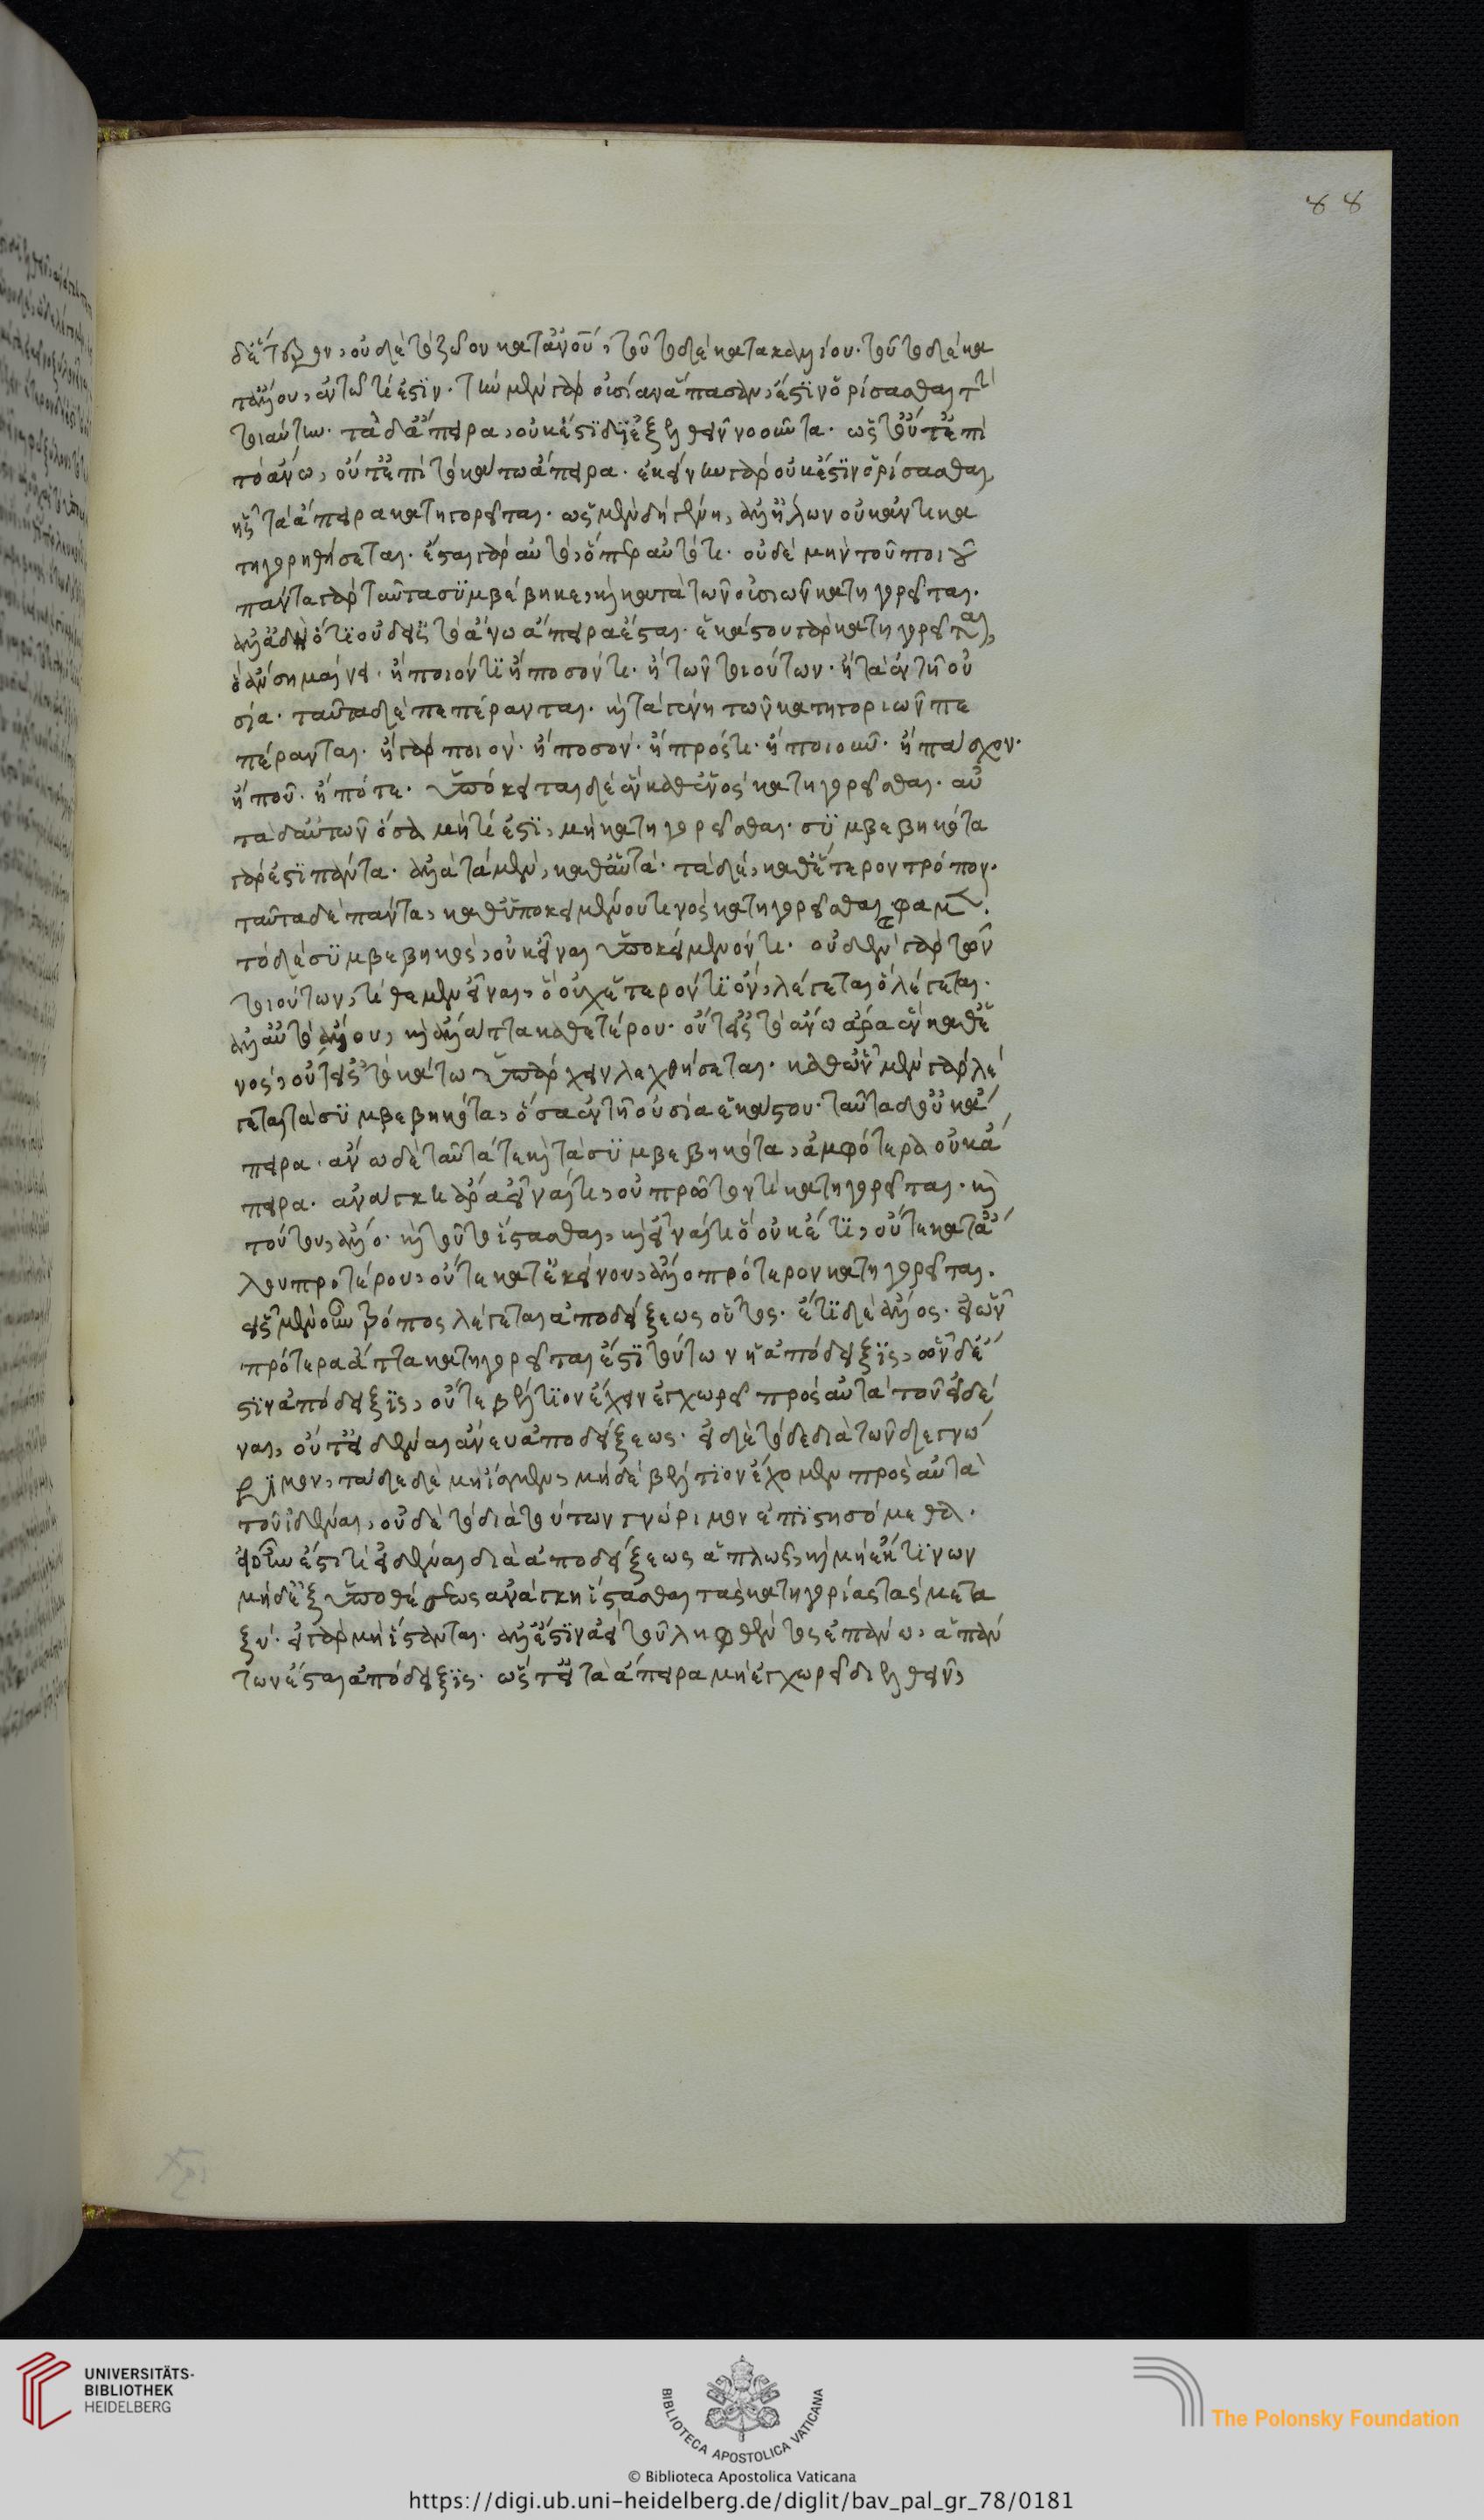 τὸ ζῶον κατ' ἀνου, τοῦτο δὲ κατὰ καλλίου. τοῦτο δὲ κα
τ' ἄλλου, ἐν τῷ τί ἐστιν. τὴν μὲν γὰρ οὐσίαν ἅπασαν, ἔστιν ὁρίσασθαι τὴν
τοιαύτην. τὰ δ' ἄπειρα, οὐκ ἔστι διεξελθεῖν νοοῦντα. ὥστ' οὔτ' ἐπὶ
τὸ ἄνω, οὔτ' ἐπὶ τὸ κάτω ἄπειρα. ἐκείνην γὰρ οὐκ ἔστιν ὁρίσασθαι,
ἧς τὰ ἄπειρα κατηγορεῖται. ὡς μὲν δὴ γένη, ἀλλήλων οὐκ ἀντικα
τηγορηθήσεται. ἔσται γὰρ αὐτὸ, ὅπερ αὐτό τι. οὐδὲ μὴν τοῦ ποιοῦ
πάντα γὰρ ταῦτα συμβέβηκε, καὶ κατὰ τῶν οὐσιῶν κατηγορεῖται.
ἀλλὰ δὴ ὅτι οὐδ' εἰς τὸ ἄνω ἄπειρα ἔσται. ἑκάστου γὰρ κατηγορεῖται,
ὃ ἂν σημαίνει. ἢ ποιόν τι ἢ ποσόν τι. ἢ τῶν τοιούτων. ἢ τὰ ἐν τῇ οὐ
σία. ταῦτα δὲ πεπέρανται. καὶ τὰ γένη τῶν κατηγοριῶν πε
πέρανται. ἢ γὰρ ποιόν. ἢ ποσόν. ἢ πρός τι. ἢ ποιοῦν. ἢ πάσχον.
ἢ ποῦ. ἢ πότε. ὑπόκειται δὲ ἓν καθ' ἑνὸς κατηγορεῖσθαι. αὐ
τὰ δ' αὑτῶν ὅσα μὴ τί ἐστι, μὴ κατηγορεῖσθαι. συμβεβηκότα
γάρ ἐστι πάντα. ἀλλὰ τὰ μὲν, καθ' αὑτά. τὰ δὲ, καθ' ἕτερον τρόπον.
ταῦτα δὲ πάντα, καθ' ὑποκειμένου τινὸς κατηγορεῖσθαι φαμέν.
τὸ δὲ συμβεβηκός, οὐκ εἶναι ὑποκείμενόν τι. οὐδὲν γὰρ τῶν
τοιούτων, τίθεμεν εἶναι, ὃ οὐχ ἕτερόν τι ὂν, λέγεται ὃ λέγεται.
ἀλλ' αὐτὸ ἄλλου, καὶ ἄλλ' ἄττα καθ' ἑτέρου. οὔτ' εἰς τὸ ἄνω ἄρα ἓν καθ' ἑ
νός, οὔτ' εἰς τὸ κάτω ὑπάρχειν λεχθήσεται. καθ' ὧν μὲν γὰρ λέ
γεται τὰ συμβεβηκότα, ὅσα ἐν τῇ οὐσία ἑκάστου. ταῦτα δὲ οὐκ ἄ
πειρα. ἄνω δὲ ταῦτά τε καὶ τὰ συμβεβηκότα, ἀμφότερα οὐκ ἄ
πειρα. ἀνάγκη ἄρα εἶναί τι, οὗ πρῶτόν τι κατηγορεῖται. καὶ
τούτου, ἄλλο. καὶ τοῦτο ἵστασθαι, καὶ εἶναί τι ὃ οὐκέτι, οὔτε κατ' ἄλ
λου προτέρου, οὔτε κατ' ἐκείνου, ἄλλο πρότερον κατηγορεῖται.
εἷς μὲν οὖν τρόπος λέγεται ἀποδείξεως οὗτος. ἔτι δὲ ἄλλος. εἰ ὧν
πρότερα ἄττα κατηγορεῖται ἔστι τούτων ἡ ἀπόδειξις, ὧν δ' ἔ
στιν ἀπόδειξις, οὔτε βέλτιον ἔχειν ἐγχωρεῖ πρὸς αὐτὰ τοῦ εἰδέ
ναι, οὔτ' εἰδέναι ἄνευ ἀποδείξεως. εἰ δὲ τόδε διὰ τῶνδε γνώ
ριμον, τάδε δὲ μὴ ἴσμεν, μηδὲ βέλτιον ἔχομεν πρὸς αὐτὰ
τοῦ εἰδέναι, οὐδὲ τὸ διὰ τούτων γνώριμον ἐπιστησόμεθα.
εἰ οὖν ἔστι τι εἰδέναι διὰ ἀποδείξεως ἁπλῶς, καὶ μὴ ἐκ τινων
μηδ' ἐξ ὑποθέσεως ἀνάγκη ἵστασθαι τὰς κατηγορίας τὰς μετα
ξύ. εἰ γὰρ μὴ ἵστανται. ἀλλ' ἔστιν ἀεὶ τοῦ ληφθέντος ἐπάνω, ἁπάν
των ἔσται ἀπόδειξις. ὥστ' εἰ τὰ ἄπειρα μὴ ἐγχωρεῖ διελθεῖν,
88
UNIVERSITÄTS-
BIBLIOTHEK
HEIDELBERG
BIBLIOTECA APOSTOLICA VATICANA
The Polonsky Foundation
© Biblioteca Apostolica Vaticana
https://digi.ub.uni-heidelberg.de/diglit/bav_pal_gr_78/0181